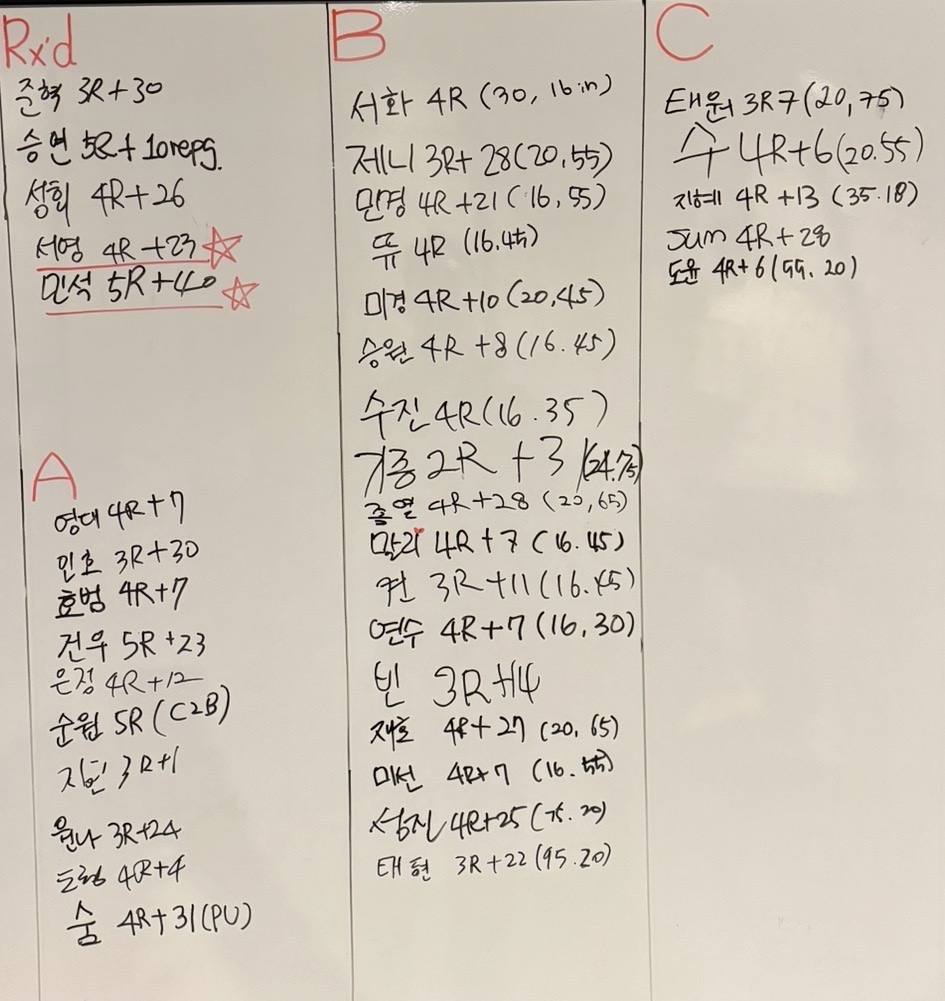 Rx'd
준혁 3R+30
승연 5R+10reps.
성회 4R+26
서영 4R+23
민석 5R+40
A
영대 4R+7
인호 3R+30
효범 4R+7
건우 5R+23
은정 4R+12
순원 5R (C2B)
지빈 3R+1
윤나 3R+24
도형 4R+4
숨 4R+31(PU)
B
서화 4R (30, 16in)
제니 3R+28(20,55)
민경 4R+21(16,55)
뜌 4R (16.45)
미경 4R+10(20,45)
승원 4R+8(16.45)
수진 4R(16.35)
기종 2R+3 (24.75)
종열 4R+28 (20,65)
만리 4R+7 (16.45)
켠 3R+11(16.45)
연수 4R+7(16,30)
빈 3R+14
재호 4R+27 (20,65)
미선 4R+7 (16.55)
성진 4R+25(75.20)
태현 3R+22(95.20)
C
태원 3R7(20,75)
수 4R+6(20.55)
지혜 4R+13 (35.18)
Jum 4R+28
도윤 4R+6(55.20)